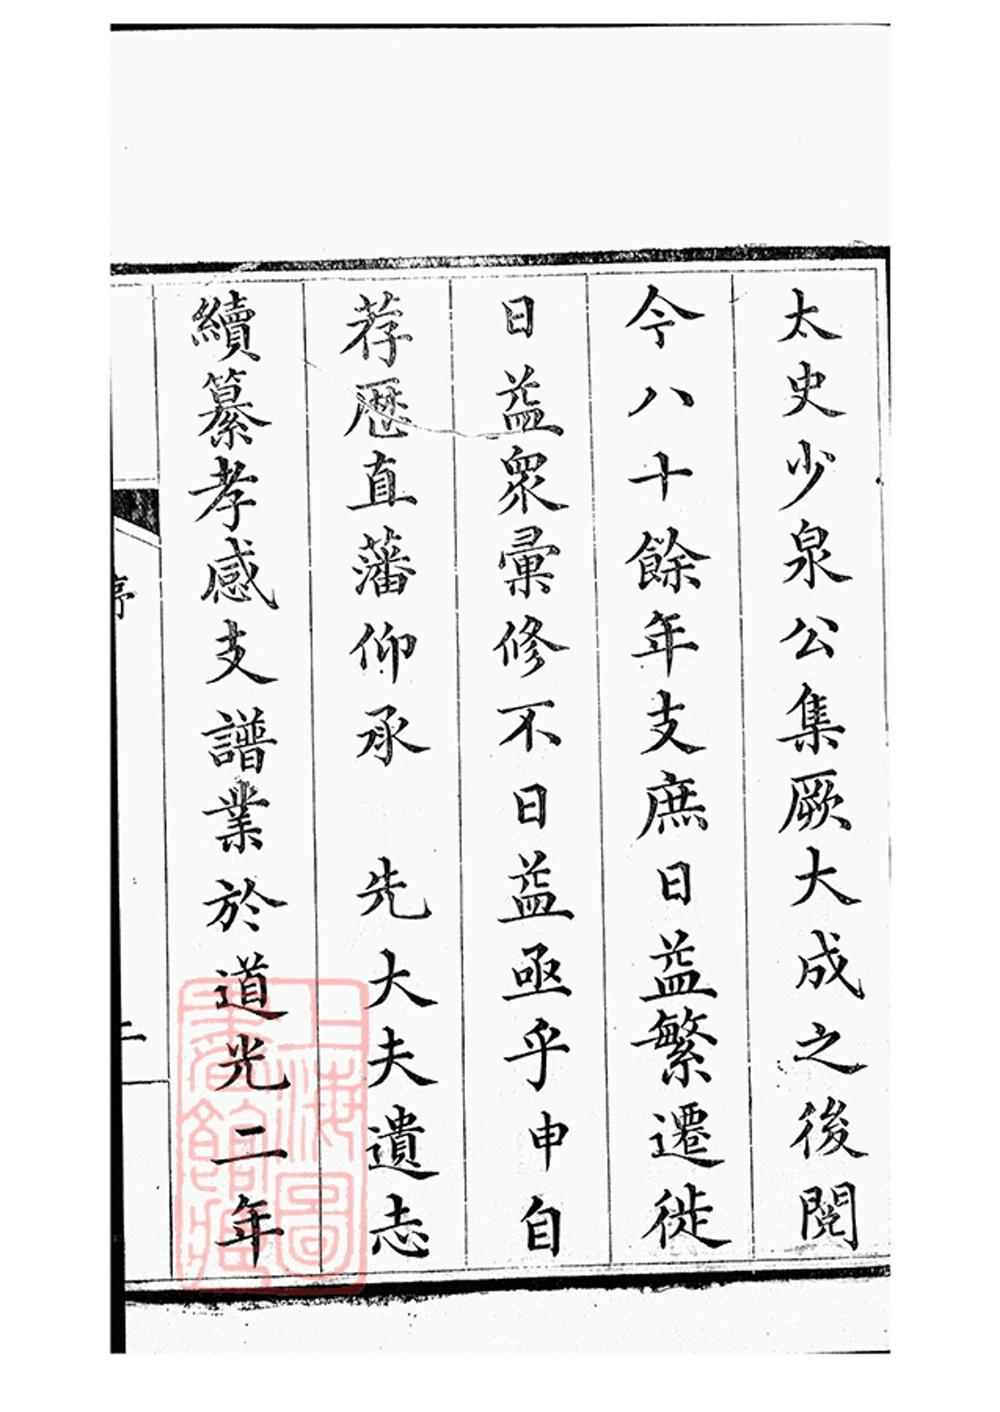 太史少泉公集厥大成之後閱
今八十餘年支庶日益繁遷徙
日益衆彙修不日益亟乎申自
荐歷直藩仰承　先大夫遺志
續纂孝感支譜業於道光二年
序
二
上海圖書館藏